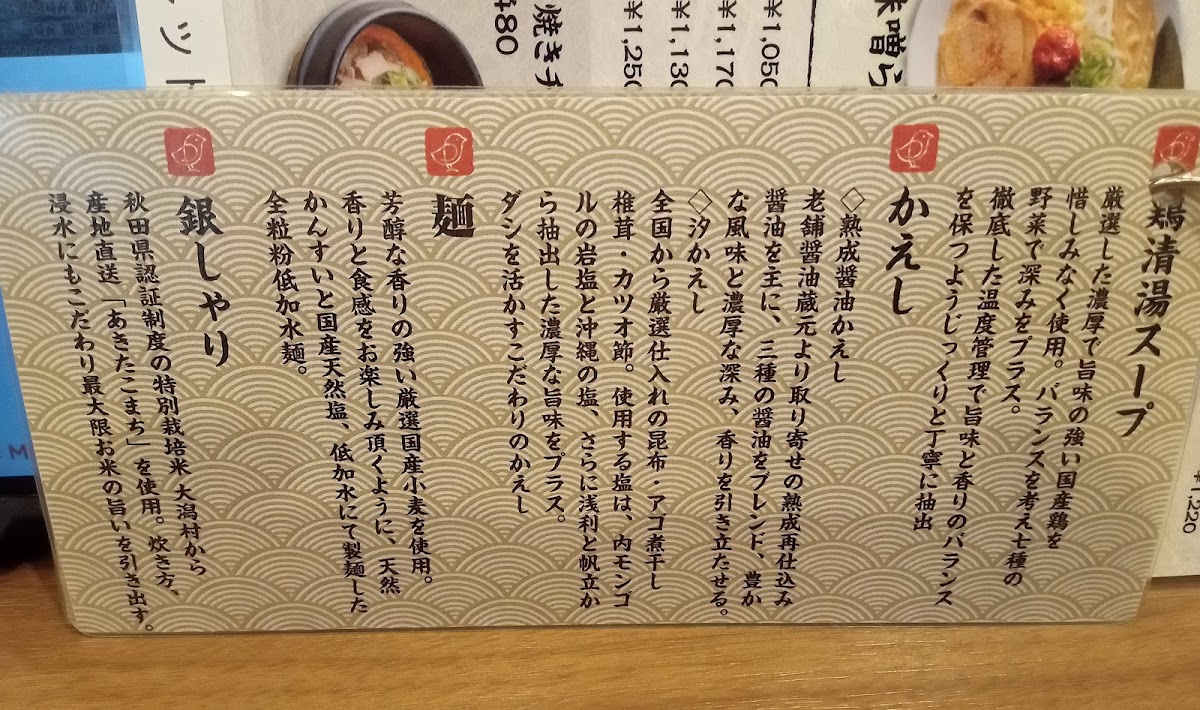 鶏清湯スープ
厳選した濃厚で旨味の強い国産鶏を
惜しみなく使用。バランスを考え七種の
野菜で深みをプラス。
徹底した温度管理で旨味と香りのバランス
を保つようじっくりと丁寧に抽出
かえし
◇熟成醤油かえし
老舗醤油蔵元より取り寄せの熟成再仕込み
醤油を主に、三種の醤油をブレンド、豊か
な風味と濃厚な深み、香りを引き立たせる。
◇汐かえし
全国から厳選仕入れの昆布・アゴ煮干し
椎茸・カツオ節。使用する塩は、内モンゴ
ルの岩塩と沖縄の塩、さらに浅利と帆立か
ら抽出した濃厚な旨味をプラス。
ダシを活かすこだわりのかえし
麺
芳醇な香りの強い厳選国産小麦を使用。
香りと食感をお楽しみ頂くように、天然
かんすいと国産天然塩、低加水にて製麺した
全粒粉低加水麺。
銀しゃり
秋田県認証制度の特別栽培米 大潟村から
産地直送「あきたこまち」を使用。炊き方、
浸水にもこだわり最大限お米の旨いを引き出す。
味噌ら
¥1,050
¥1,170
¥1,130
¥1,250
焼き
¥80
ット
1,220